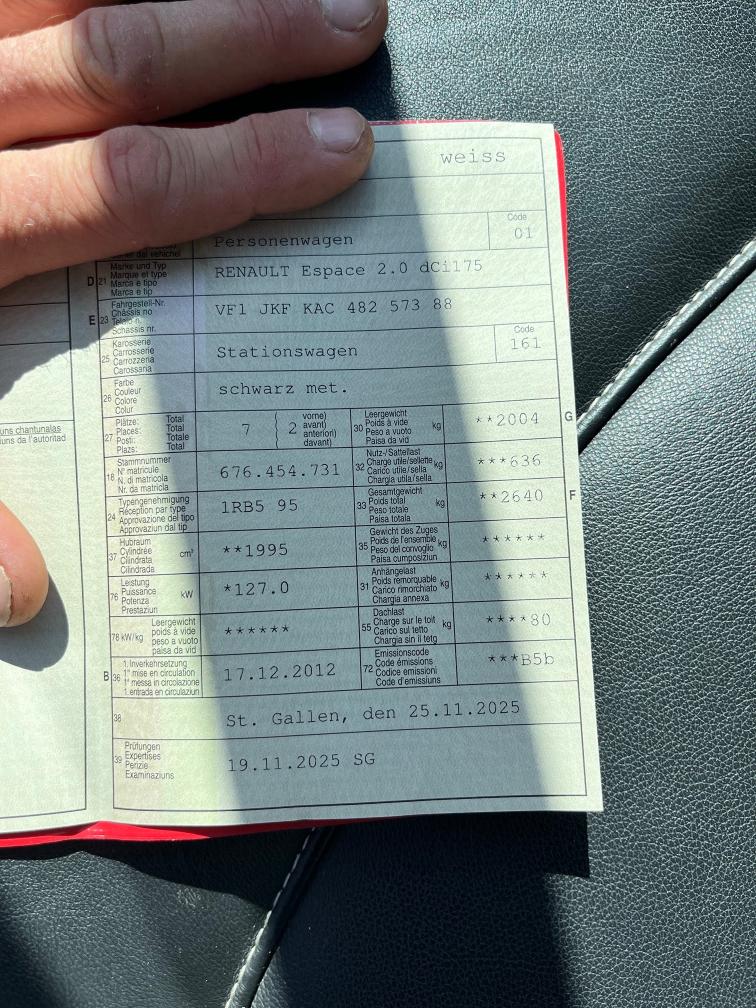 weiss
Code
Personenwagen 01
D 21 Marke und Typ
Marque et type
Marca e tipo
Marca e tip
RENAULT Espace 2.0 dCi175
E 23 Fahrgestell-Nr.
Châssis no
Telaio n.
Schassis nr.
VF1 JKF KAC 482 573 88
25 Karosserie
Carrosserie
Carrozzeria
Carossaria
Stationswagen
Code
161
26 Farbe
Couleur
Colore
Colur
schwarz met.
27 Plätze: Total
Places: Total
Posti: Totale
Plazs: Total
7 ( 2 vorne)
avant)
anteriori)
davant)
30 Leergewicht
Poids à vide
Peso a vuoto
Paisa da vid
kg
**2004 G
18 Stammnummer
N° matricule
N. di matricola
Nr. da matricla
676.454.731
32 Nutz-/Sattellast
Charge utile/sellette
Carico utile/sella
Chargia utila/sella
kg
***636
24 Typengenehmigung
Réception par type
Approvazione del tipo
Approvaziun dal tip
1RB5 95
33 Gesamtgewicht
Poids total
Peso totale
Paisa totala
kg
**2640 F
37 Hubraum
Cylindrée
Cilindrata
Cilindrada
cm³
**1995
35 Gewicht des Zuges
Poids de l'ensemble
Peso del convoglio
Paisa cumposiziun
kg
******
76 Leistung
Puissance
Potenza
Prestaziun
kW
*127.0
31 Anhängelast
Poids remorquable
Carico rimorchiato
Chargia annexa
kg
******
78 kW/kg Leergewicht
poids à vide
peso a vuoto
paisa da vid
******
55 Dachlast
Charge sur le toit
Carico sul tetto
Chargia sin il tetg
kg
****80
B 36 1. Inverkehrsetzung
1re mise en circulation
1a messa in circolazione
1. entrada en circulaziun
17.12.2012
72 Emissionscode
Code émissions
Codice emissioni
Code d'emissiuns
***B5b
38
St. Gallen, den 25.11.2025
39 Prüfungen
Expertises
Perizie
Examinaziuns
19.11.2025 SG
uns chantunalas
uns da l'autoritad